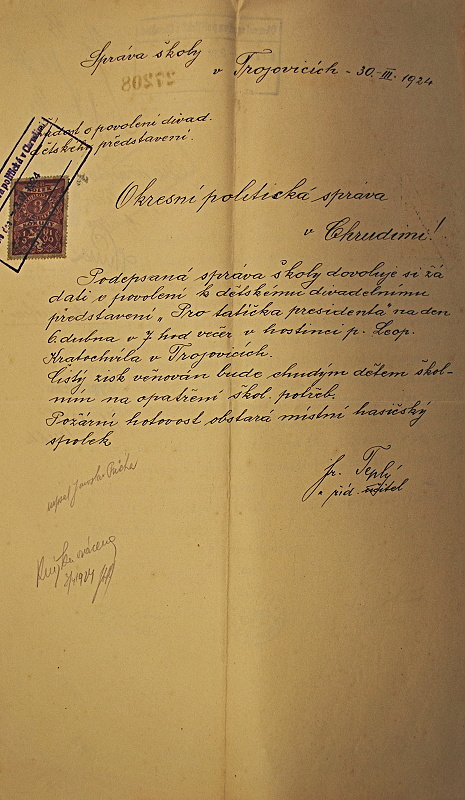 Správa školy
v Trojovicích - 30. III. 1924
27208
Žádost o povolení divad.
dětského představení.
politická v Chrudimi
Okresní politická správa
v Chrudimi!
Podepsaná správa školy dovoluje si žá
dati v povolení k dětskému divadelnímu
představení „Pro tatíčka presidenta" na den
6. dubna v 7 hod večer v hostinci p. Leop.
Kratochvila v Trojovicích.
Čistý zisk věnován bude chudým dětem škol-
ním na opatření škol. potřeb.
Požární hotovost obstará místní hasičský
spolek
Fr. Teplý
říd. učitel
napsal Jaroslav
vrácena
1924